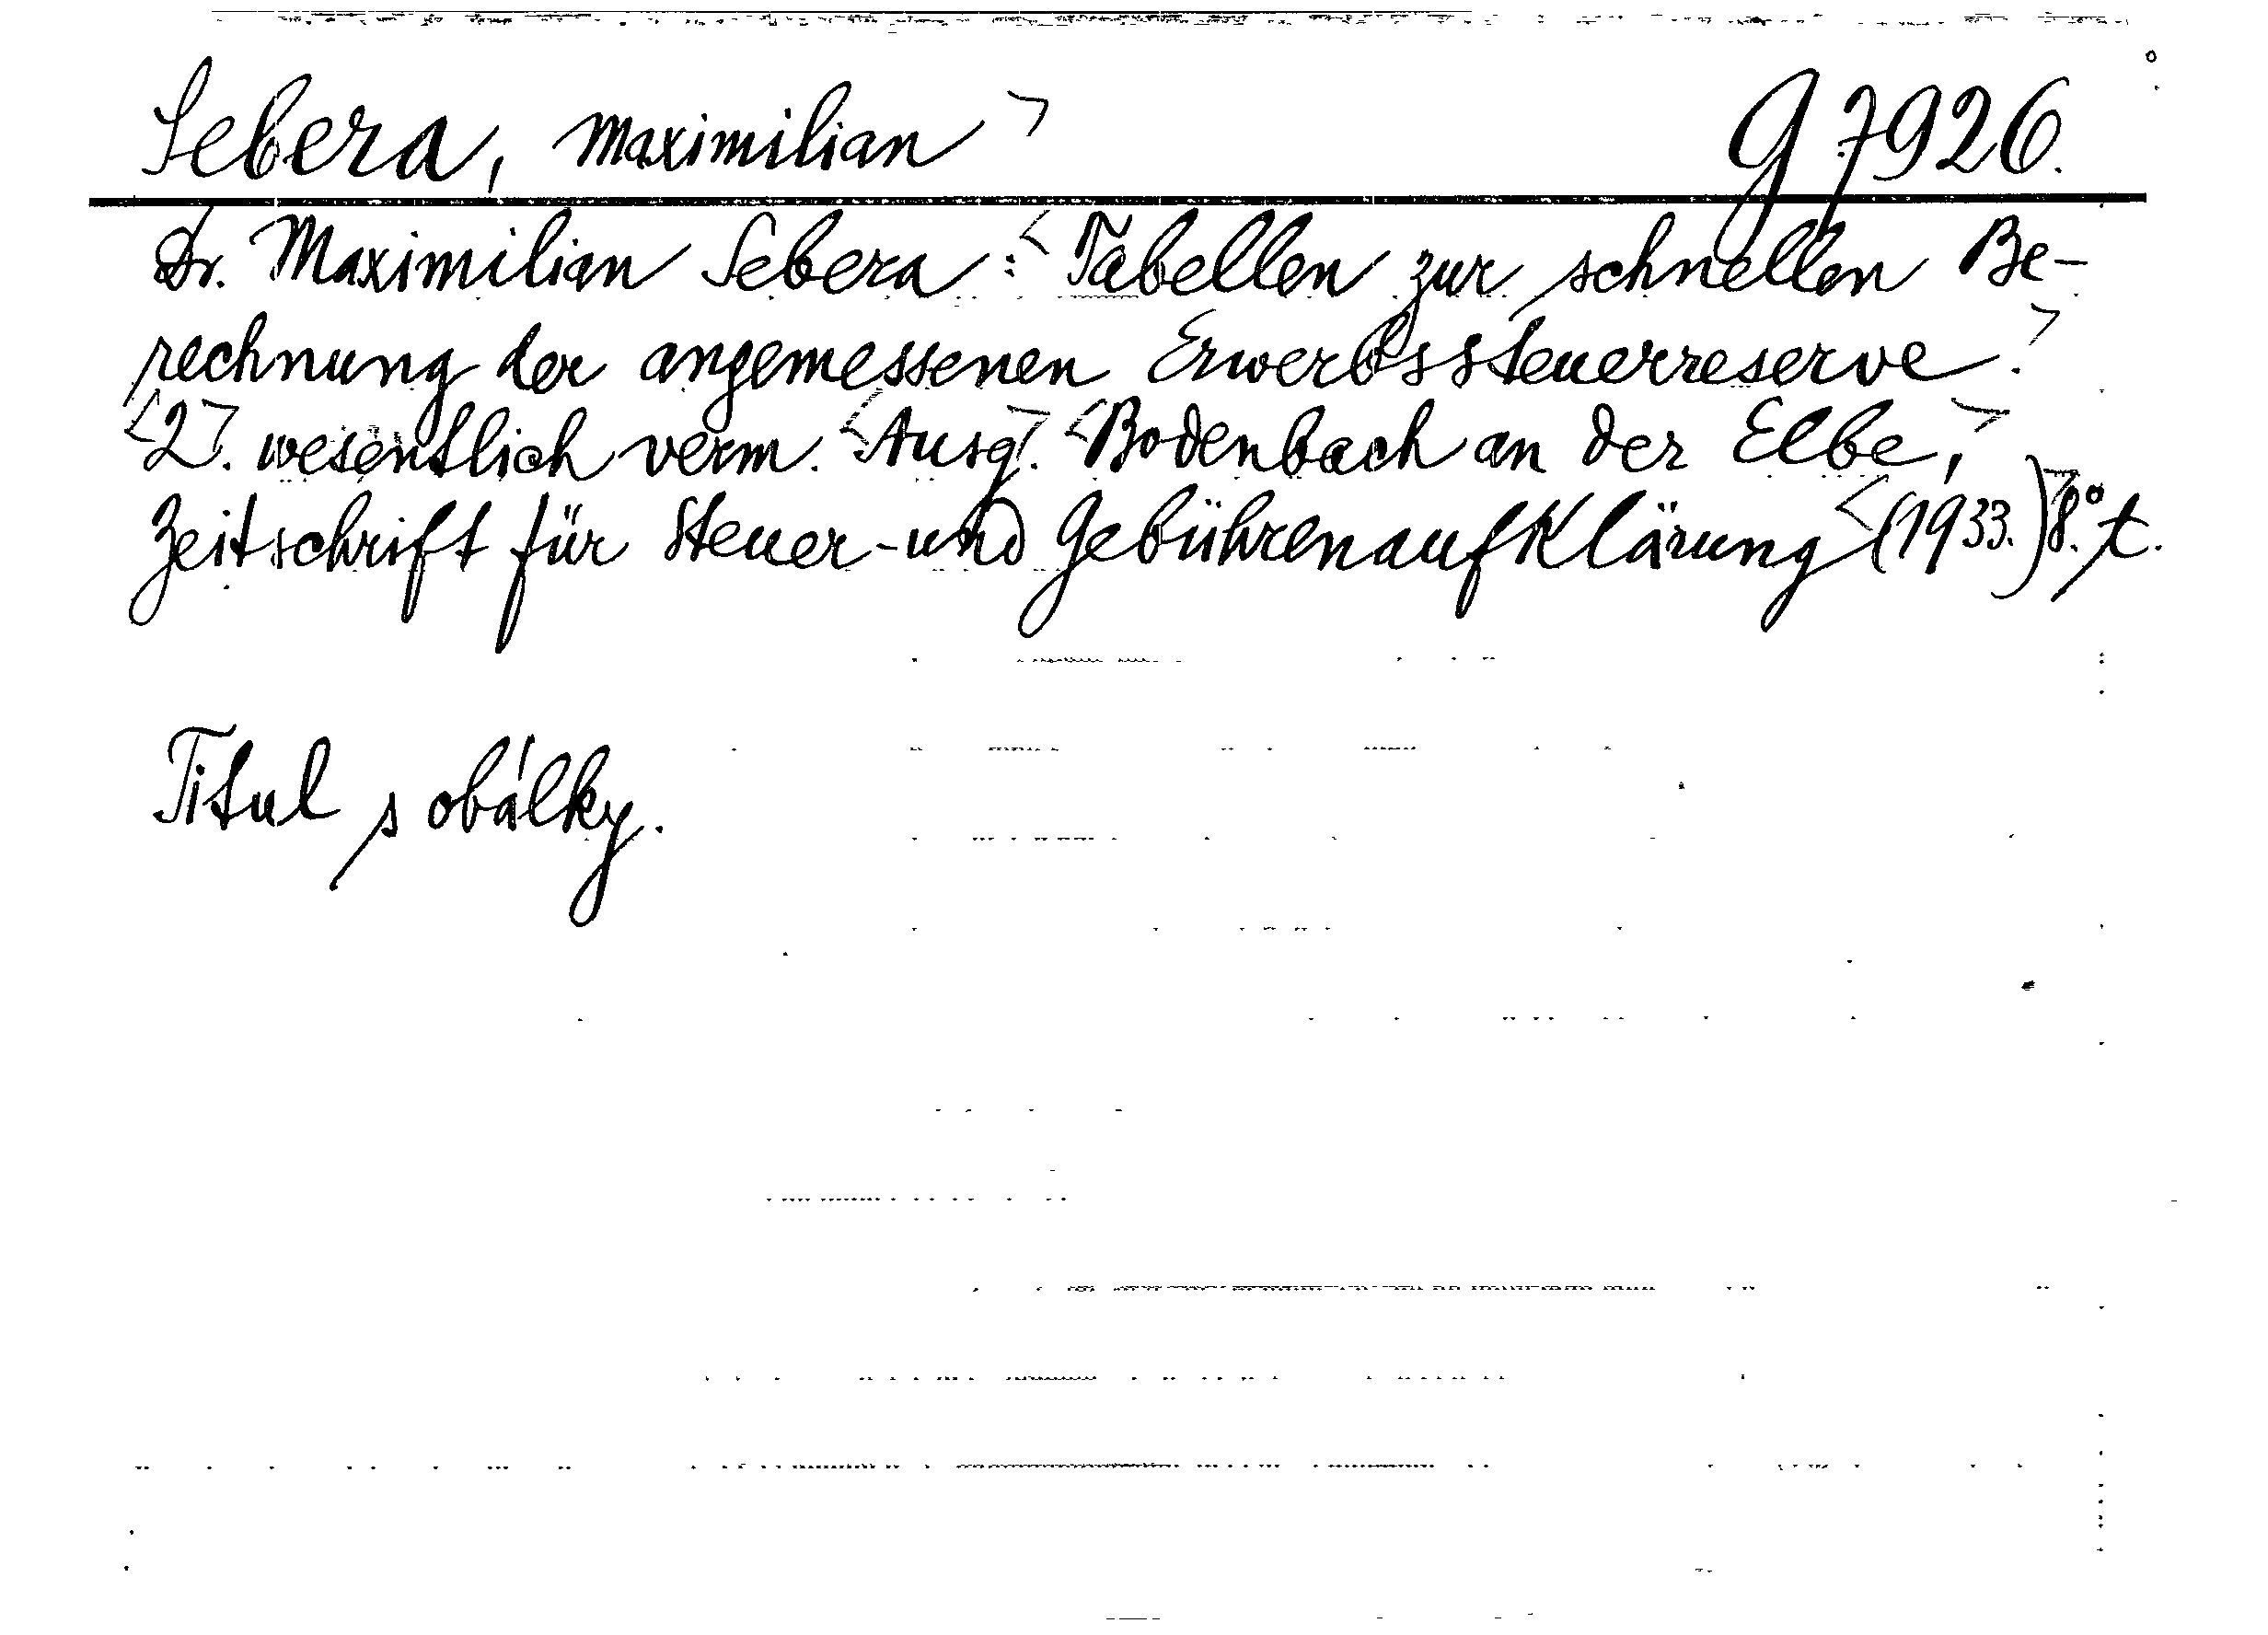 Sebera, Maximilian> G 7926.
Dr. Maximilian Sebera: <Tabellen zur schnellen Be-
rechnung der angemessenen Erwerbssteuerreserve.>
<2>. wesentlich verm. <Ausg>. <Bodenbach an der Elbe,>
Zeitschrift für Steuer-und Gebührenaufklärung <(1933.)> 8.° t.
Titul s obálky.